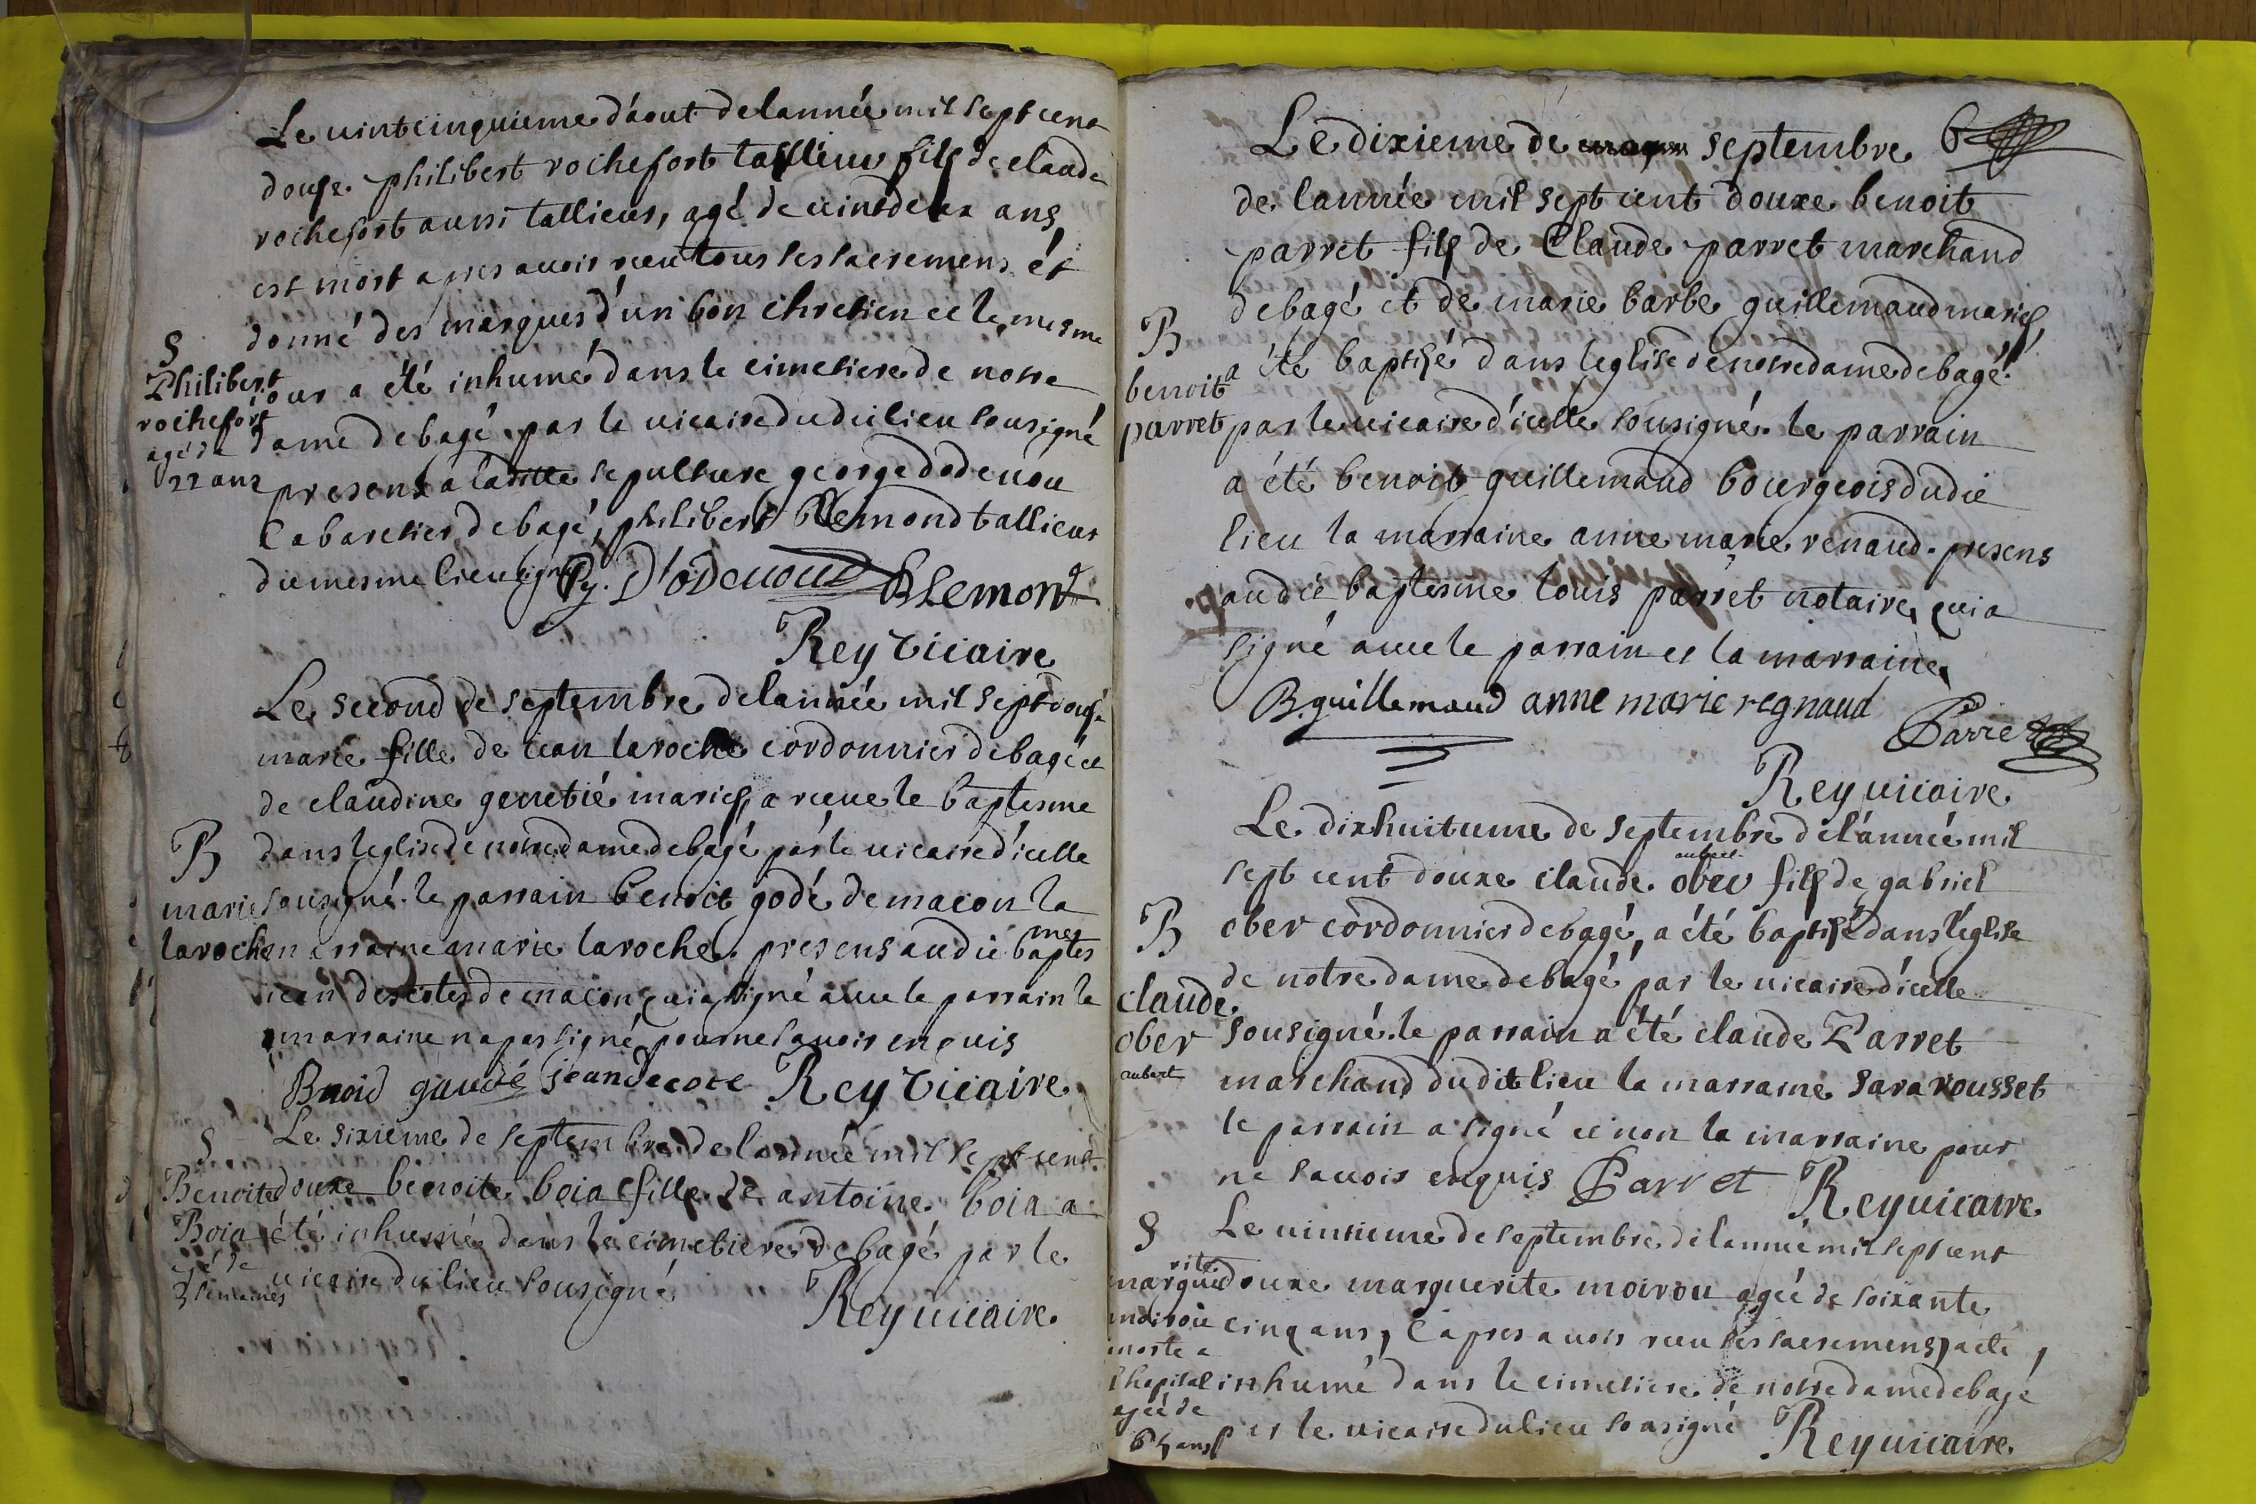 Le uintcinquieme d'aout delannée mil sept cent
douse philibert rochefort tallieur fils de claude
rochefort aussi tallieur, agé de uintdeux ans
est mort apres auoir receu tous les sacremens et
donné des marques d'un bon chretien et le mesme
S
Philibert
rochefort
agé de
22 ans
jour a été inhumé dans le cimetiere de notre
dame debagé par le uicaire dudit lieu sousigné
presens a ladille sepulture george dodeuou
Cabaretier debagé, philibert Blemond tallieur
du mesme lieu
D'odeuoud Blemond
Rey Vicaire
Le second de septembre delannée mil sept douse
marie fille de iean laroche cordonnier debagé et
de claudine genetié mariés, a receue le baptesme
B
marie
laroche
dans leglise de notredame debagé par le uicaire d'icelle
sousigné. le parrain benoit godé de macon la
marraine marie laroche. presens audit baptesme
iean descotes de macon qui a signé auec le parrain la
marraine na pas signé pour ne sauoir enquis
Bnoid gaudé jean decote Rey Vicaire
S
Benoite
Boia
agé de
3 semaines
Le sixieme de septembre de lannée mil sept cent
douxe benoite boia fille de antoine boia a
été inhumé dans le cimetiere debagé par le
uicaire du lieu sousigné
Rey uicaire.
6
Le dixieme de septembre
de lannée mil sept cent douxe benoit
parret fils de Claude parret marchand
debagé et de marie barbe guillemaud mariés,
B
benoit
parret
a été baptisé dans leglise de notredame debagé
par le uicaire d'icelle sousigné. le parrain
a été benoit guillemaud bourgeois dudit
lieu la marraine anne marie renaud. presens
audit baptesme louis parret notaire, qui a
signé auec le parrain et la marraine
B. guillemaud anne marie regnaud
Parret
Rey uicaire
Le dixhuitieme de septembre de l'année mil
aubert
sept cent douxe claude ober fils de gabriel
B
claude
ober
aubert
ober cordonnier debagé, a été baptisé dans l'église
de notredame debagé par le uicaire d'icelle
sousigné. le parrain a été claude Parret
marchand dudit lieu la marraine sara rousset
le parrain a signé et non la marraine pour
ne sauoir enquis Parret Rey uicaire
S
marguerite
moirou
morte a
lhopital
agéé de
65 ans
Le uintieme de septembre de lannée mil sept cent
douxe marguerite moirou agéé de soixante
cinq ans, et apres auoir receu ses sacremens, a eté
inhumé dans le cimetiere de notredame debagé
par le uicaire du lieu sousigné Rey uicaire